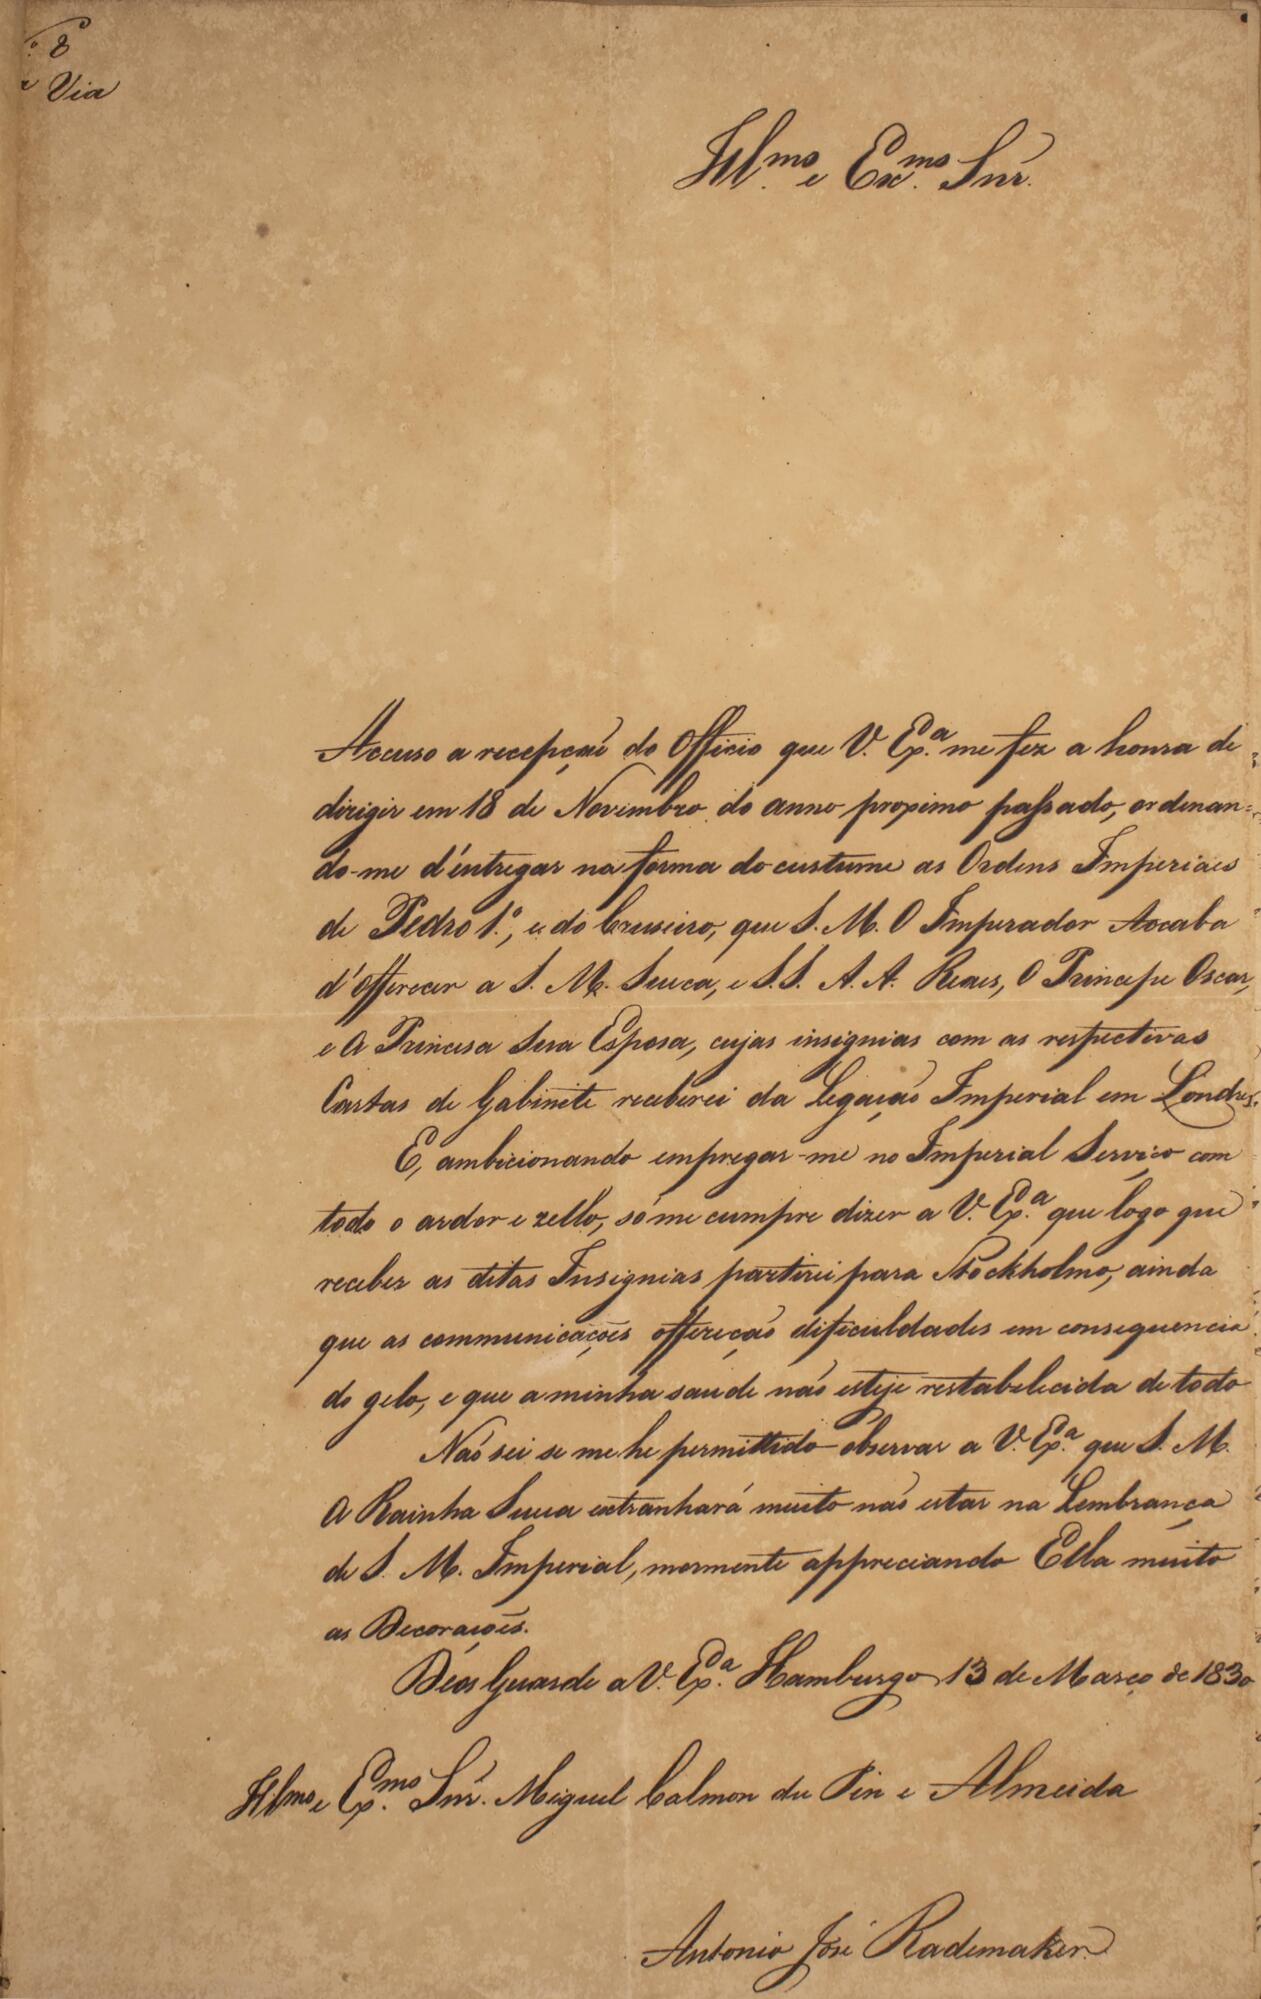 8
Via
Illmo e Exmo Snr.
Accuso a recepção do Officio que V. Exa. me fez a honra de
dirigir em 18 de Novembro do anno proximo passado, ordenan-
do-me d'entregar na forma do custume as Ordens Imperiaes
de Pedro 1.º, e do Cruseiro, que S. M. O Imperador Accaba
d'offerecer a S. M. Sueca, e S.S. A.A. Reaes, O Principe Oscar,
e A Princesa Sua Esposa, cujas insignias com as respectivas
Cartas de Gabinete receberei da Legação Imperial em Londres.
E, ambicionando empregar-me no Imperial Serviço com
todo o ardor e zello, só me cumpre dizer a V. Exa. que logo que
receber as ditas Insignias partirei para Stockholmo, ainda
que as communicações offereção dificuldades em consequencia
do gelo, e que a minha saude não esteje restabelecida de todo
Não sei se me he permittido observar a V. Exa. que S. M.
A Rainha Sueca extranhará muito não estar na Lembrança
de S. M. Imperial, mormente appreciando Ella muito
as Decorações.
Deos Guarde a V. Exa. Hamburgo 13 de Março de 1830
Illmo e Exmo. Snr. Miguel Calmon du Pin e Almeida
Antonio José Rademaker